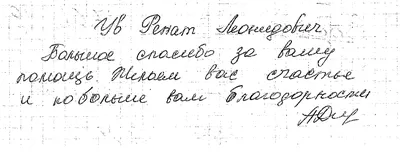 Ув Ренат Леонидович
Большое спасибо за вашу
помощь Желаем вас счастье
и побольше вам благодорности